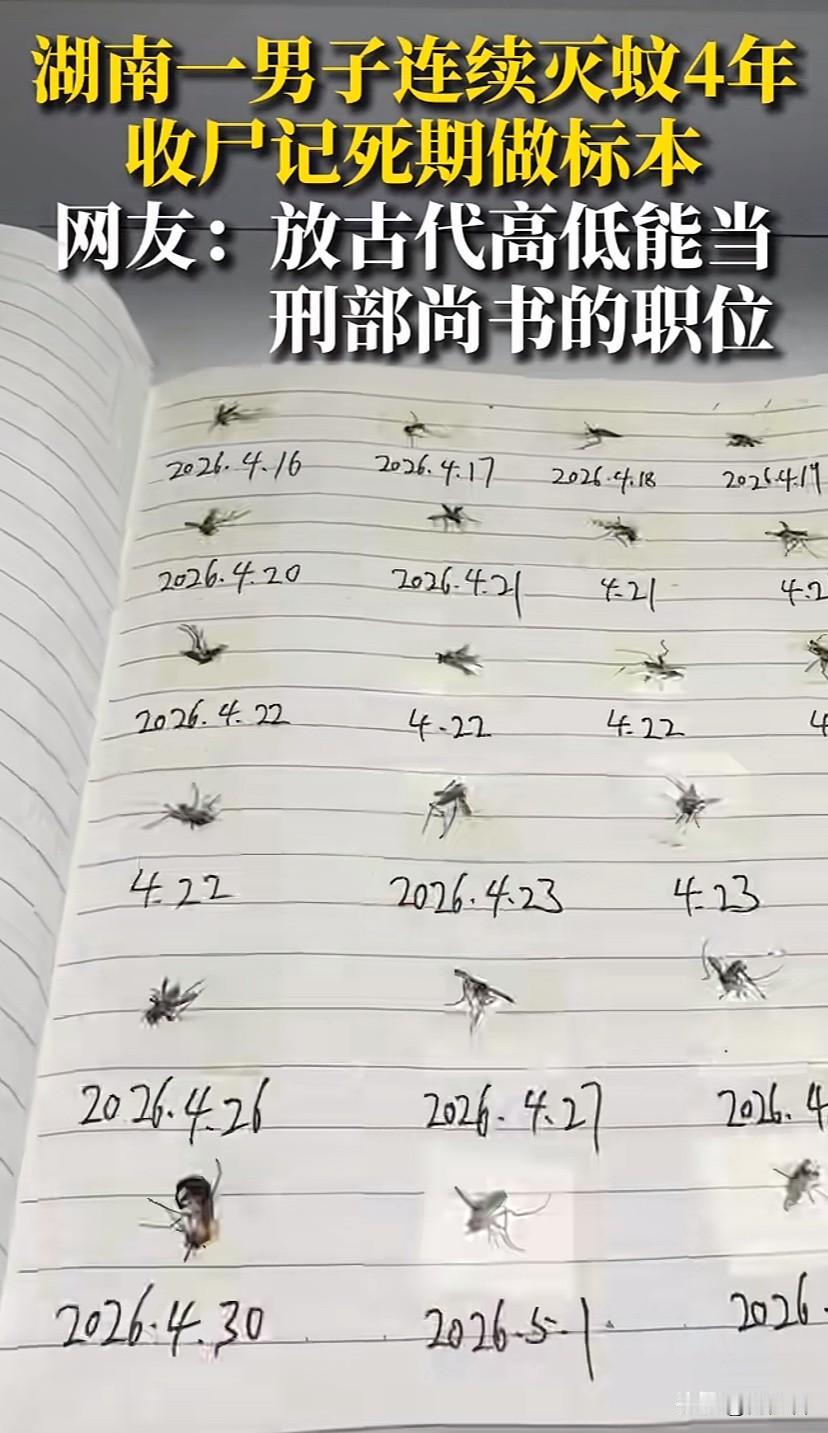 湖南一男子连续灭蚊4年
收尸记死期做标本
网友：放古代高低能当
刑部尚书的职位
2026.4.16 2026.4.17 2026.4.18 2026.4.19
2026.4.20 2026.4.21 4.21 4.2
2026.4.22 4.22 4.22 4
4.22 2026.4.23 4.23
2026.4.26 2026.4.27 2026.4
2026.4.30 2026.5.1 2026.